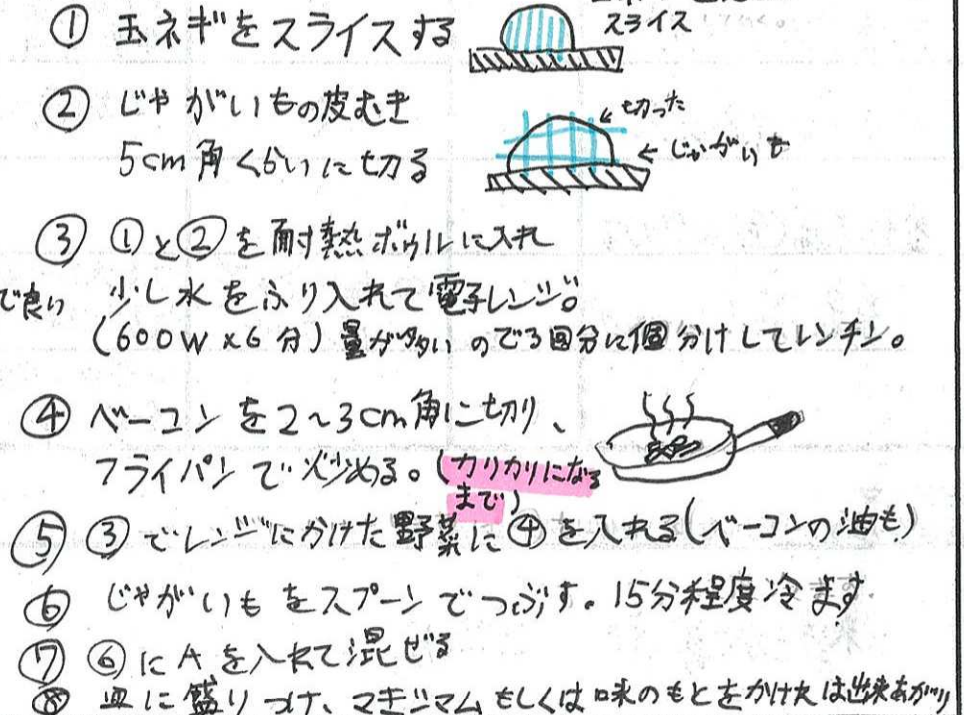 ① 玉ネギをスライスする
スライス
② じゃがいもの皮むき
5cm角くらいに切る
切った
← じゃがいも
③ ①と②を耐熱ボウルに入れ
で良い 少し水をふり入れて電子レンジ。
(600W×6分)量が多いので3回分に個分けしてレンチン。
④ ベーコンを2~3cm角に切り、
フライパンで炒める。(カリカリになる
まで)
⑤ ③でレンジにかけた野菜に④を入れる(ベーコンの油も)
⑥ じゃがいもをスプーンでつぶす。15分程度冷ます
⑦ ⑥にAを入れて混ぜる
⑧ 皿に盛りつけ、マキシマムもしくは味のもとをかけたは出来あがり